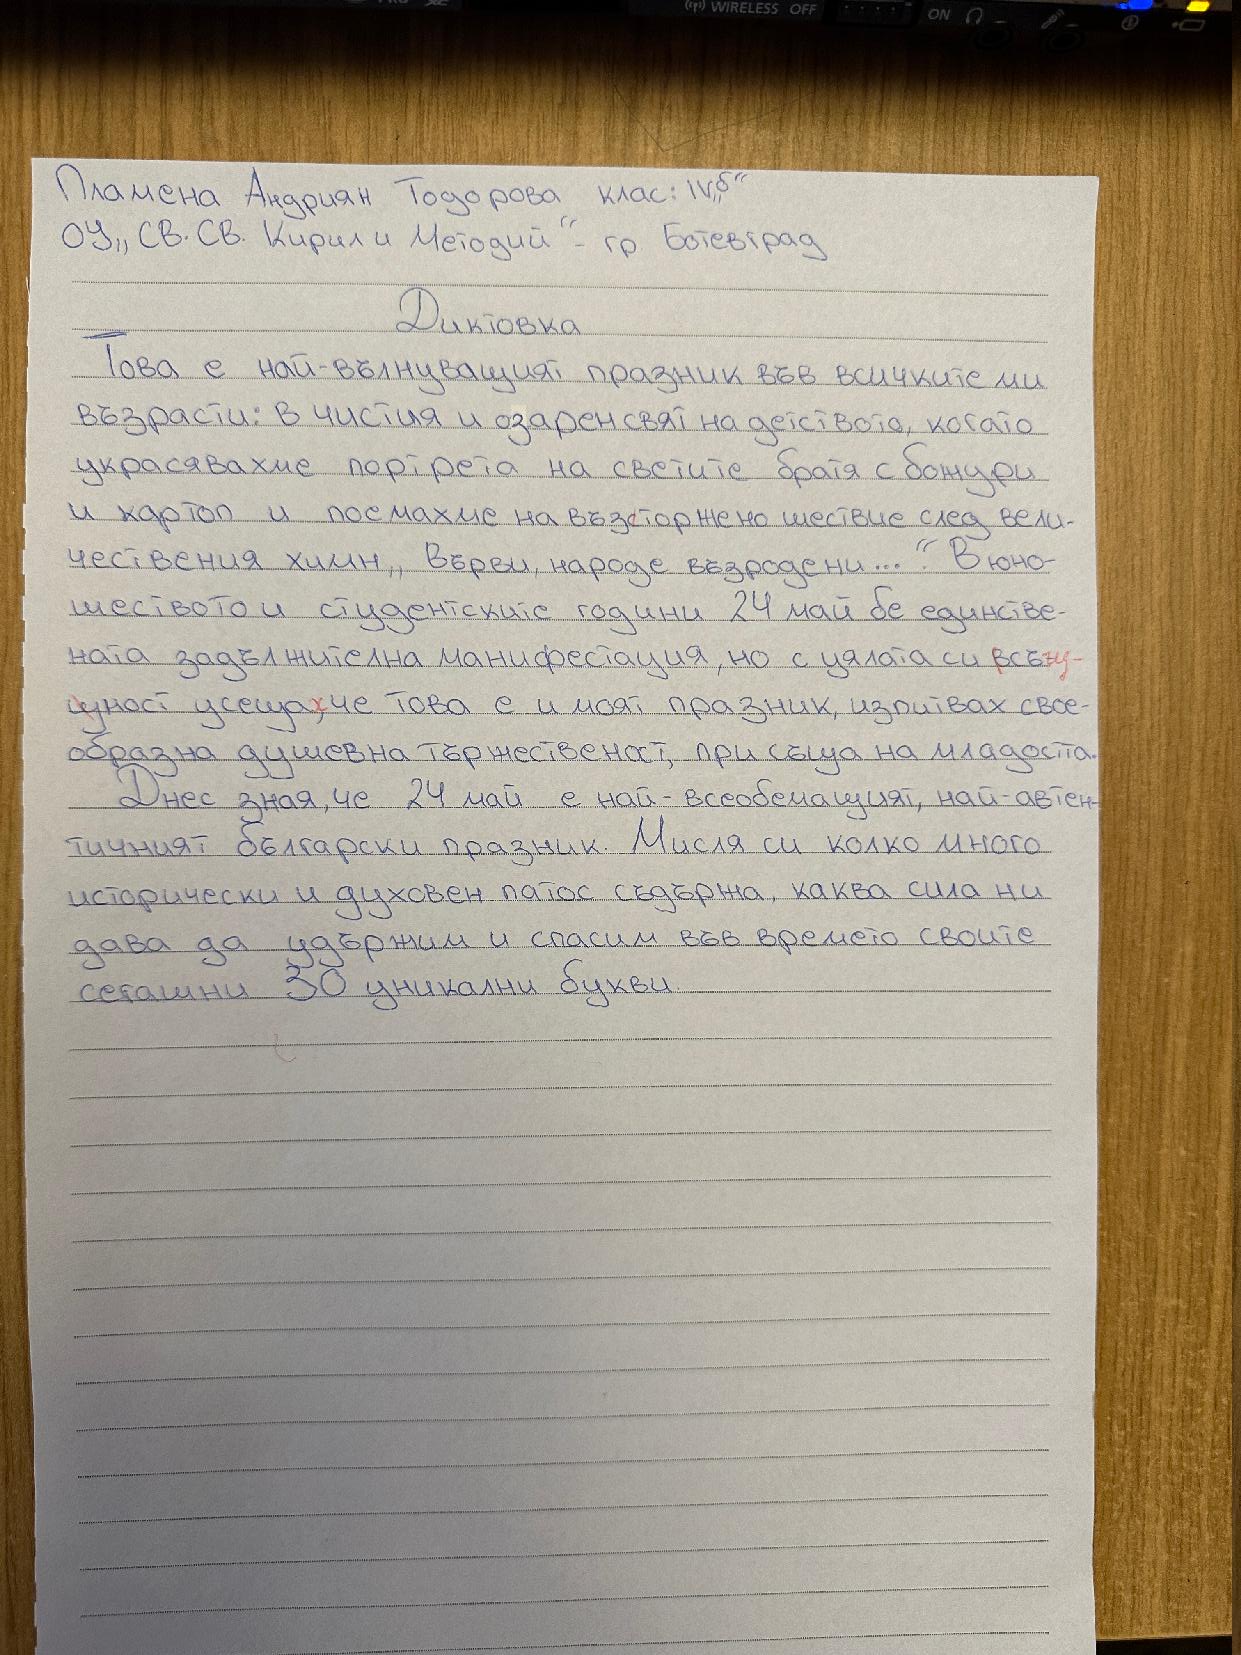 WIRELESS OFF
ON
Пламена Андриян Тодорова клас: IV„б“
ОУ„ СВ. СВ. Кирил и Методий“ - гр Ботевград
Диктовка
Това е най-вълнуващият празник във всичките ми
възрасти: в чистия и озарен свят на детството, когато
украсявахме портрета на светите братя с божури
и картоп и поемахме на възсторжено шествие след вели-
чествения химн „ Върви, народе възродени...“. В юно-
шеството и студентските години 24 май бе единстве-
ната задължителна манифестация, но с цялата си
усещах, че това е и моят празник, изпитвах свое-
образна душевна тържественост, присъща на младоста.
Днес зная, че 24 май е най-всеобемащият, най-автен-
тичният български празник. Мисля си колко много
исторически и духовен патос съдържа, каква сила ни
дава да удържим и спасим във времето своите
сегашни 30 уникални букви.